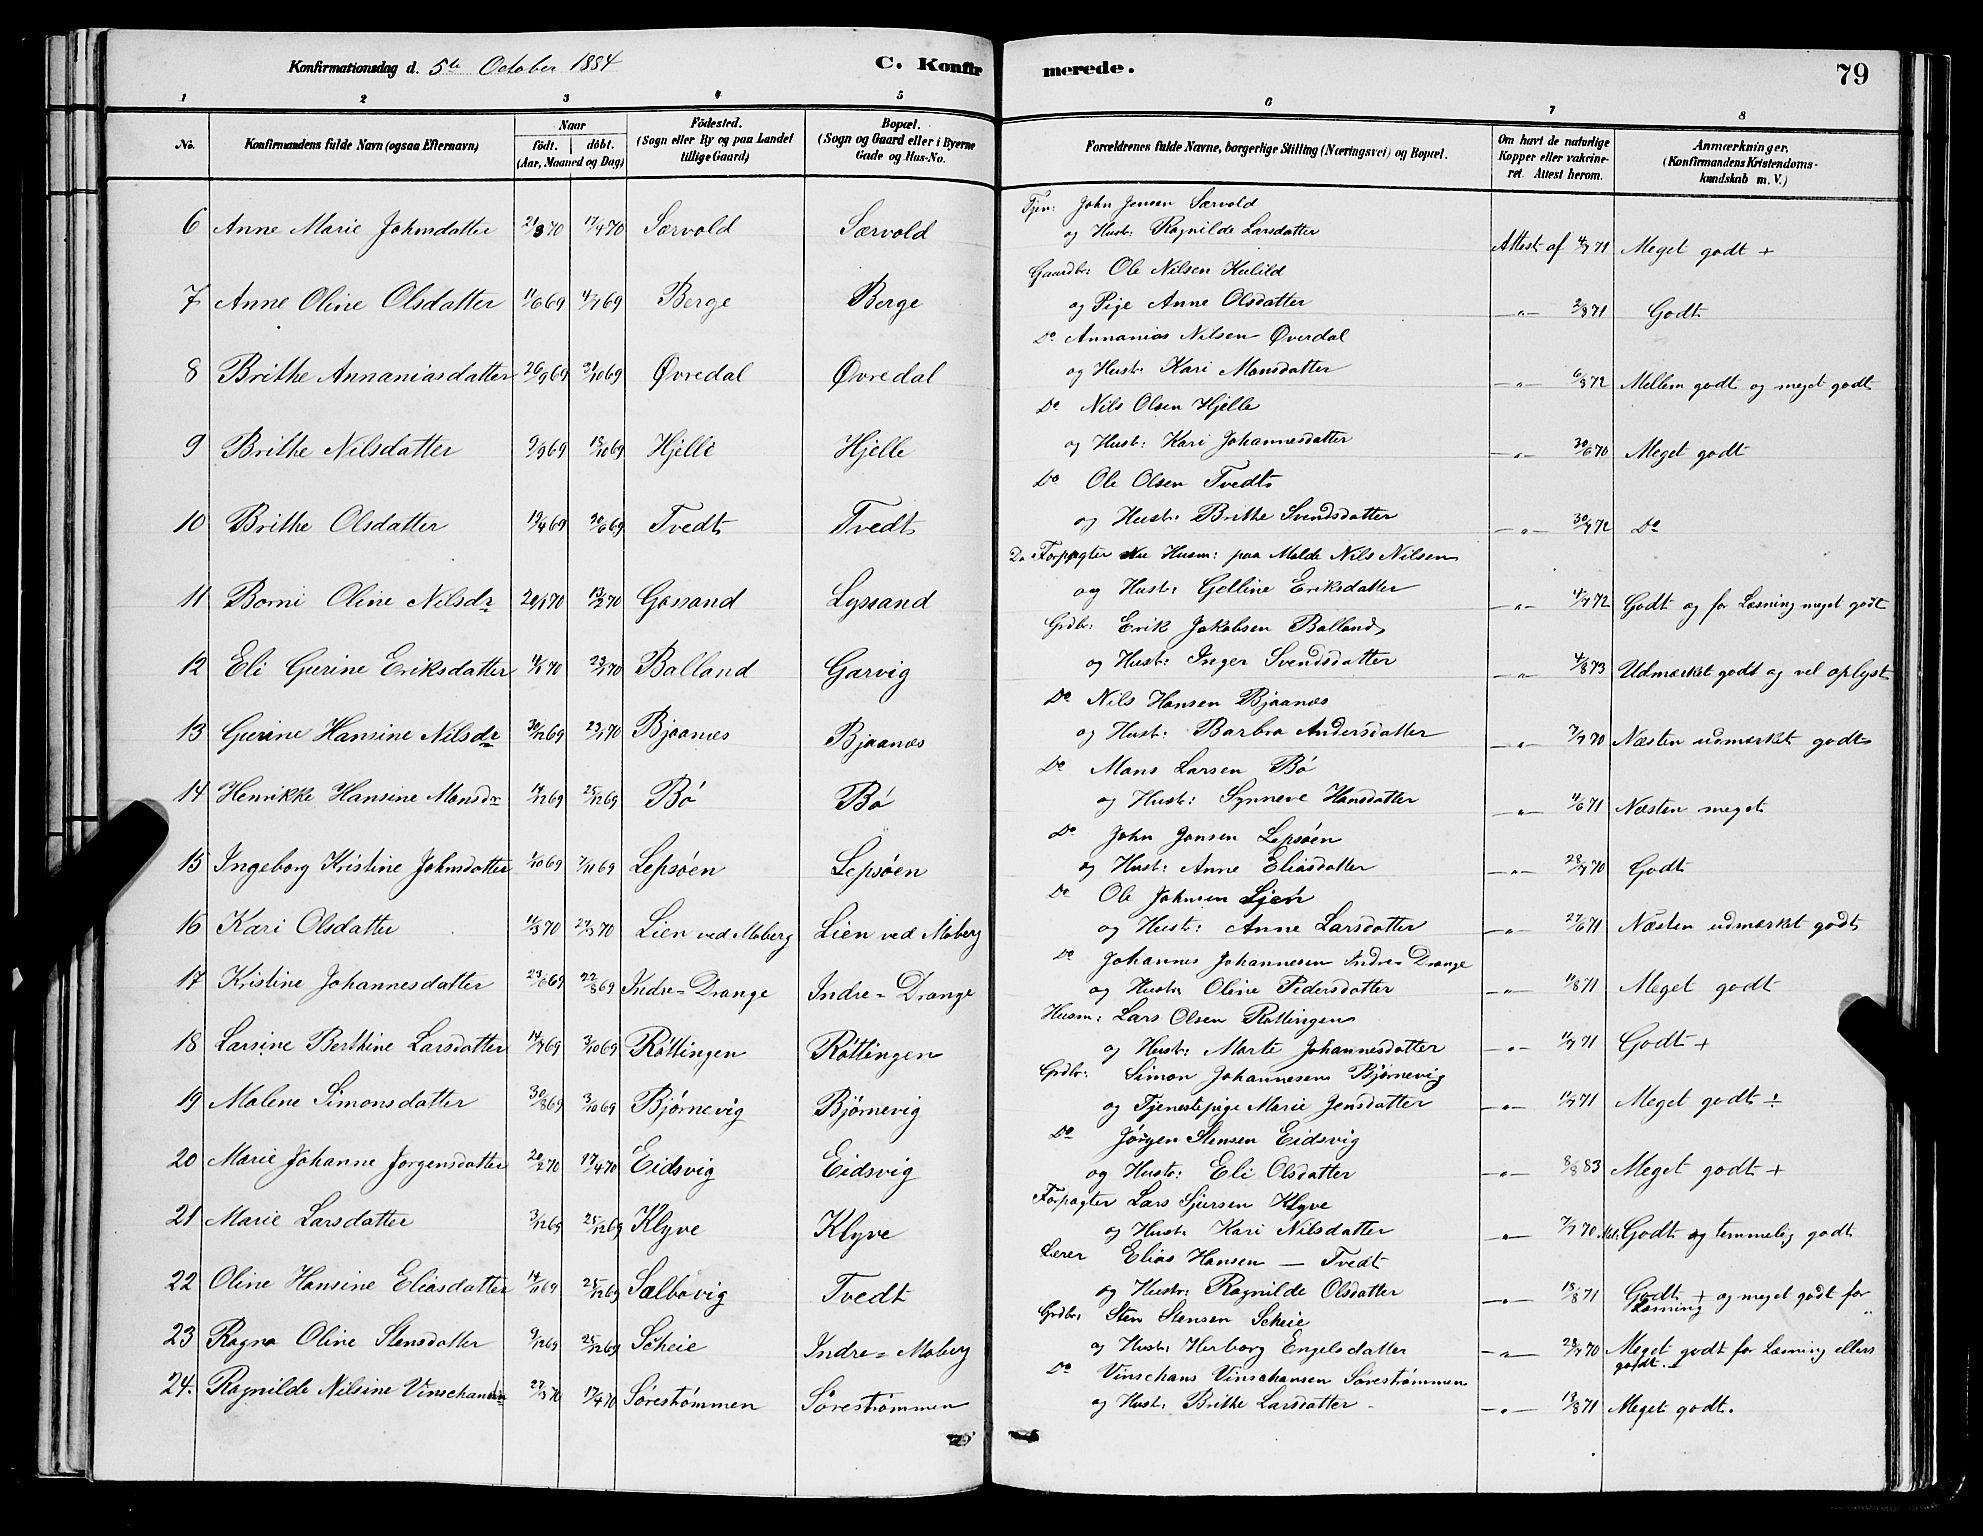 Konfirmationsdag d. 5te October 1884 C. Konfir merede. 79
1 2 3 4 5 6 7 8
No. Konfirmandens fulde Navn (ogsaa Efternavn)
Naar födt. döbt. (Aar, Maaned og Dag)
Födested. (Sogn eller By og paa Landet tillige Gaard)
Bopæl. (Sogn og Gaard eller i Byerne Gade og Hus-No.
Forældrenes fulde Navne, borgerlige Stilling (Næringsvei) og Bopæl.
Om havt de naturlige Kopper eller vakcineret. Attest herom.
Anmærkninger. (Konfirmandens Kristendomskundskab m. V.)
Tjen: John Jensen Særvold
6 Anne Marie Johnsdatter 21/3 70 17/4 70 Særvold Særvold og Hust: Ragnilde Larsdatter Attest af 4/7 71 Meget godt +
Gaardbr: Ole Nilsen Kulild
7 Anne Oline Olsdatter 11/6 69 4/7 69 Berge Berge og Pige Anne Olsdatter -"- 2/8 71 Godt
Do Annanias Nilsen Øverdal
8 Brithe Annaniasdatter 26/9 69 31/10 69 Øvredal Øvredal og Hust: Kari Monsdatter -"- 6/8 72 Mellem godt og meget godt
Do Nils Olsen Hjelle
9 Brithe Nilsdatter 9/9 69 13/10 69 Hjelle Hjelle og Hust: Kari Johannesdatter -"- 30/6 70 Meget godt
Do Ole Olsen Tvedt
10 Brithe Olsdatter 19/4 69 20/6 69 Tvedt Tvedt og Hust: Brithe Svendsdatter -"- 30/7 72 Do
Forpagter Husm: paa Molde Nils Nilsen
11 Borni Oline Nilsdr 20/1 70 13/2 70 Gåssand Lyssand og Hust: Golline Eriksdatter -"- 4/7 72 Godt og for Læsning meget godt
Grdbr: Erik Jakobsen Balland
12 Eli Gurine Eriksdatter 4/1 70 23/1 70 Balland Garvig og Hust: Inger Svendsdatter -"- 4/8 73 Udmærket godt og vel oplyst
Do Nils Hansen Bjaanæs
13 Gurine Hansine Nilsdr 30/12 69 23/1 70 Bjaanæs Bjaanæs og Hust: Barbro Andersdatter -"- 7/7 70 Næsten udmærket godt
Do Mons Larsen Bö
14 Henrikke Hansine Monsdr 14/12 69 25/12 69 Bö Bö og Hust: Synneve Hansdatter -"- 11/6 71 Næsten meget
Do John Jonsen Lepsöen
15 Ingeborg Kristine Johnsdatter 1/10 69 7/11 69 Lepsöen Lepsöen og Hust: Anne Eliasdatter -"- 28/7 70 Godt
Do Ole Johnsen Ljen
16 Kari Olsdatter 11/3 70 27/3 70 Lien ved Moberg Lien ved Moberg og Hust: Anne Larsdatter -"- 27/6 71 Næsten udmærket godt
Do Johannes Johannesen Indre-Drange
17 Kristine Johannesdatter 23/6 69 22/8 69 Indre-Drange Indre-Drange og Hust: Oline Pedersdatter -"- 11/8 71 Meget godt
Husm: Lars Olsen Röttingen
18 Larsine Berthine Larsdatter 14/9 69 3/10 69 Röttingen Röttingen og Hust: Marte Johannesdatter -"- 11/7 71 Godt +
Grdbr: Simon Johannesen Björnevig
19 Malene Simonsdatter 30/8 69 3/10 69 Björnevig Björnevig og Tjenestepige Marie Jensdatter -"- 11/7 71 Meget godt ÷
Do Jörgen Stensen Eidsvig
20 Marie Johanne Jorgensdatter 20/2 70 17/4 70 Eidsvig Eidsvig og Hustr: Eli Olsdatter -"- 8/8 83 Meget godt +
Forpagter Lars Sjursen Klyve
21 Marie Larsdatter 3/12 69 25/12 69 Klyve Klyve og Hust: Kari Nilsdatter -"- 7/7 70 Godt og temmelig godt
Lærer Elias Hansen — Tvedt
22 Oline Hansine Eliasdatter 14/11 69 25/12 69 Salbovig Tvedt og Hustr: Ragnilde Olsdatter -"- 18/8 71 Godt + og meget godt for Læsning
Grdbr: Sten Stensen Scheie
23 Ragna Oline Stensdatter 9/12 69 25/12 69 Scheie Indre-Moberg og Hust: Herborg Engelsdatter -"- 28/7 70 Meget godt for Læsning ellers godt
Do Vinschans Vinschansen Sörestrømmen
24. Ragnilde Nilsine Vinschansdr 27/3 70 17/4 70 Sörestrømmen Sörestrømmen og Hust: Brithe Larsdatter -"- 18/8 71 Meget godt.